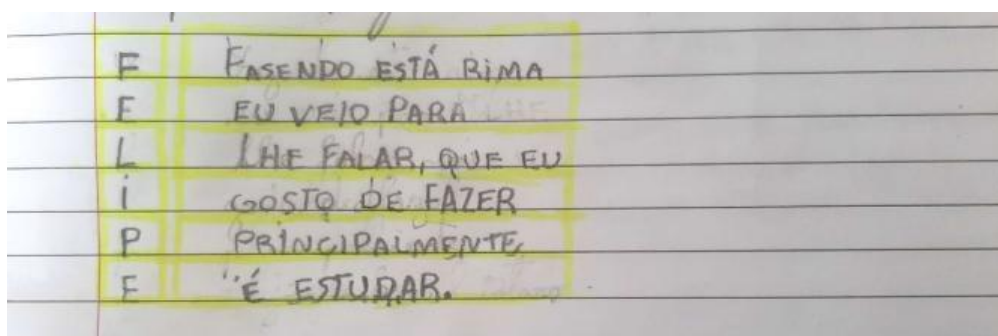 F FASENDO ESTÁ RIMA
E EU VEIO PARA
L LHE FALAR, QUE EU
I GOSTO DE FAZER
P PRINCIPALMENTE,
E É ESTUDAR.